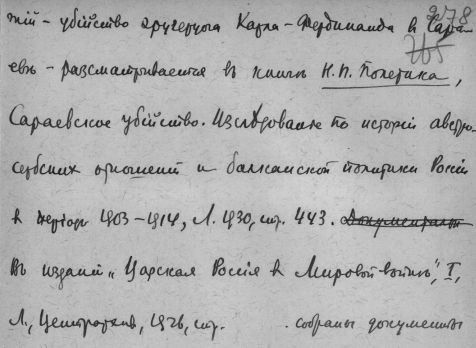 тій – убійство эрцгерцога Карла-Фердинанда в Сара-
278
265
евѣ – разсматривается въ книгѣ Н. П. Полетика,
Сараевское убійство. Изслѣдование по исторіи австро-
сербских отношеній и балканской политики Россіи
в період 1903–1914, Л. 1930, стр. 443. Документальн
Въ изданіи „Царская Россія в Міровой войнѣ", I,
Л., Центрархив, 1926, стр. . собраны документы